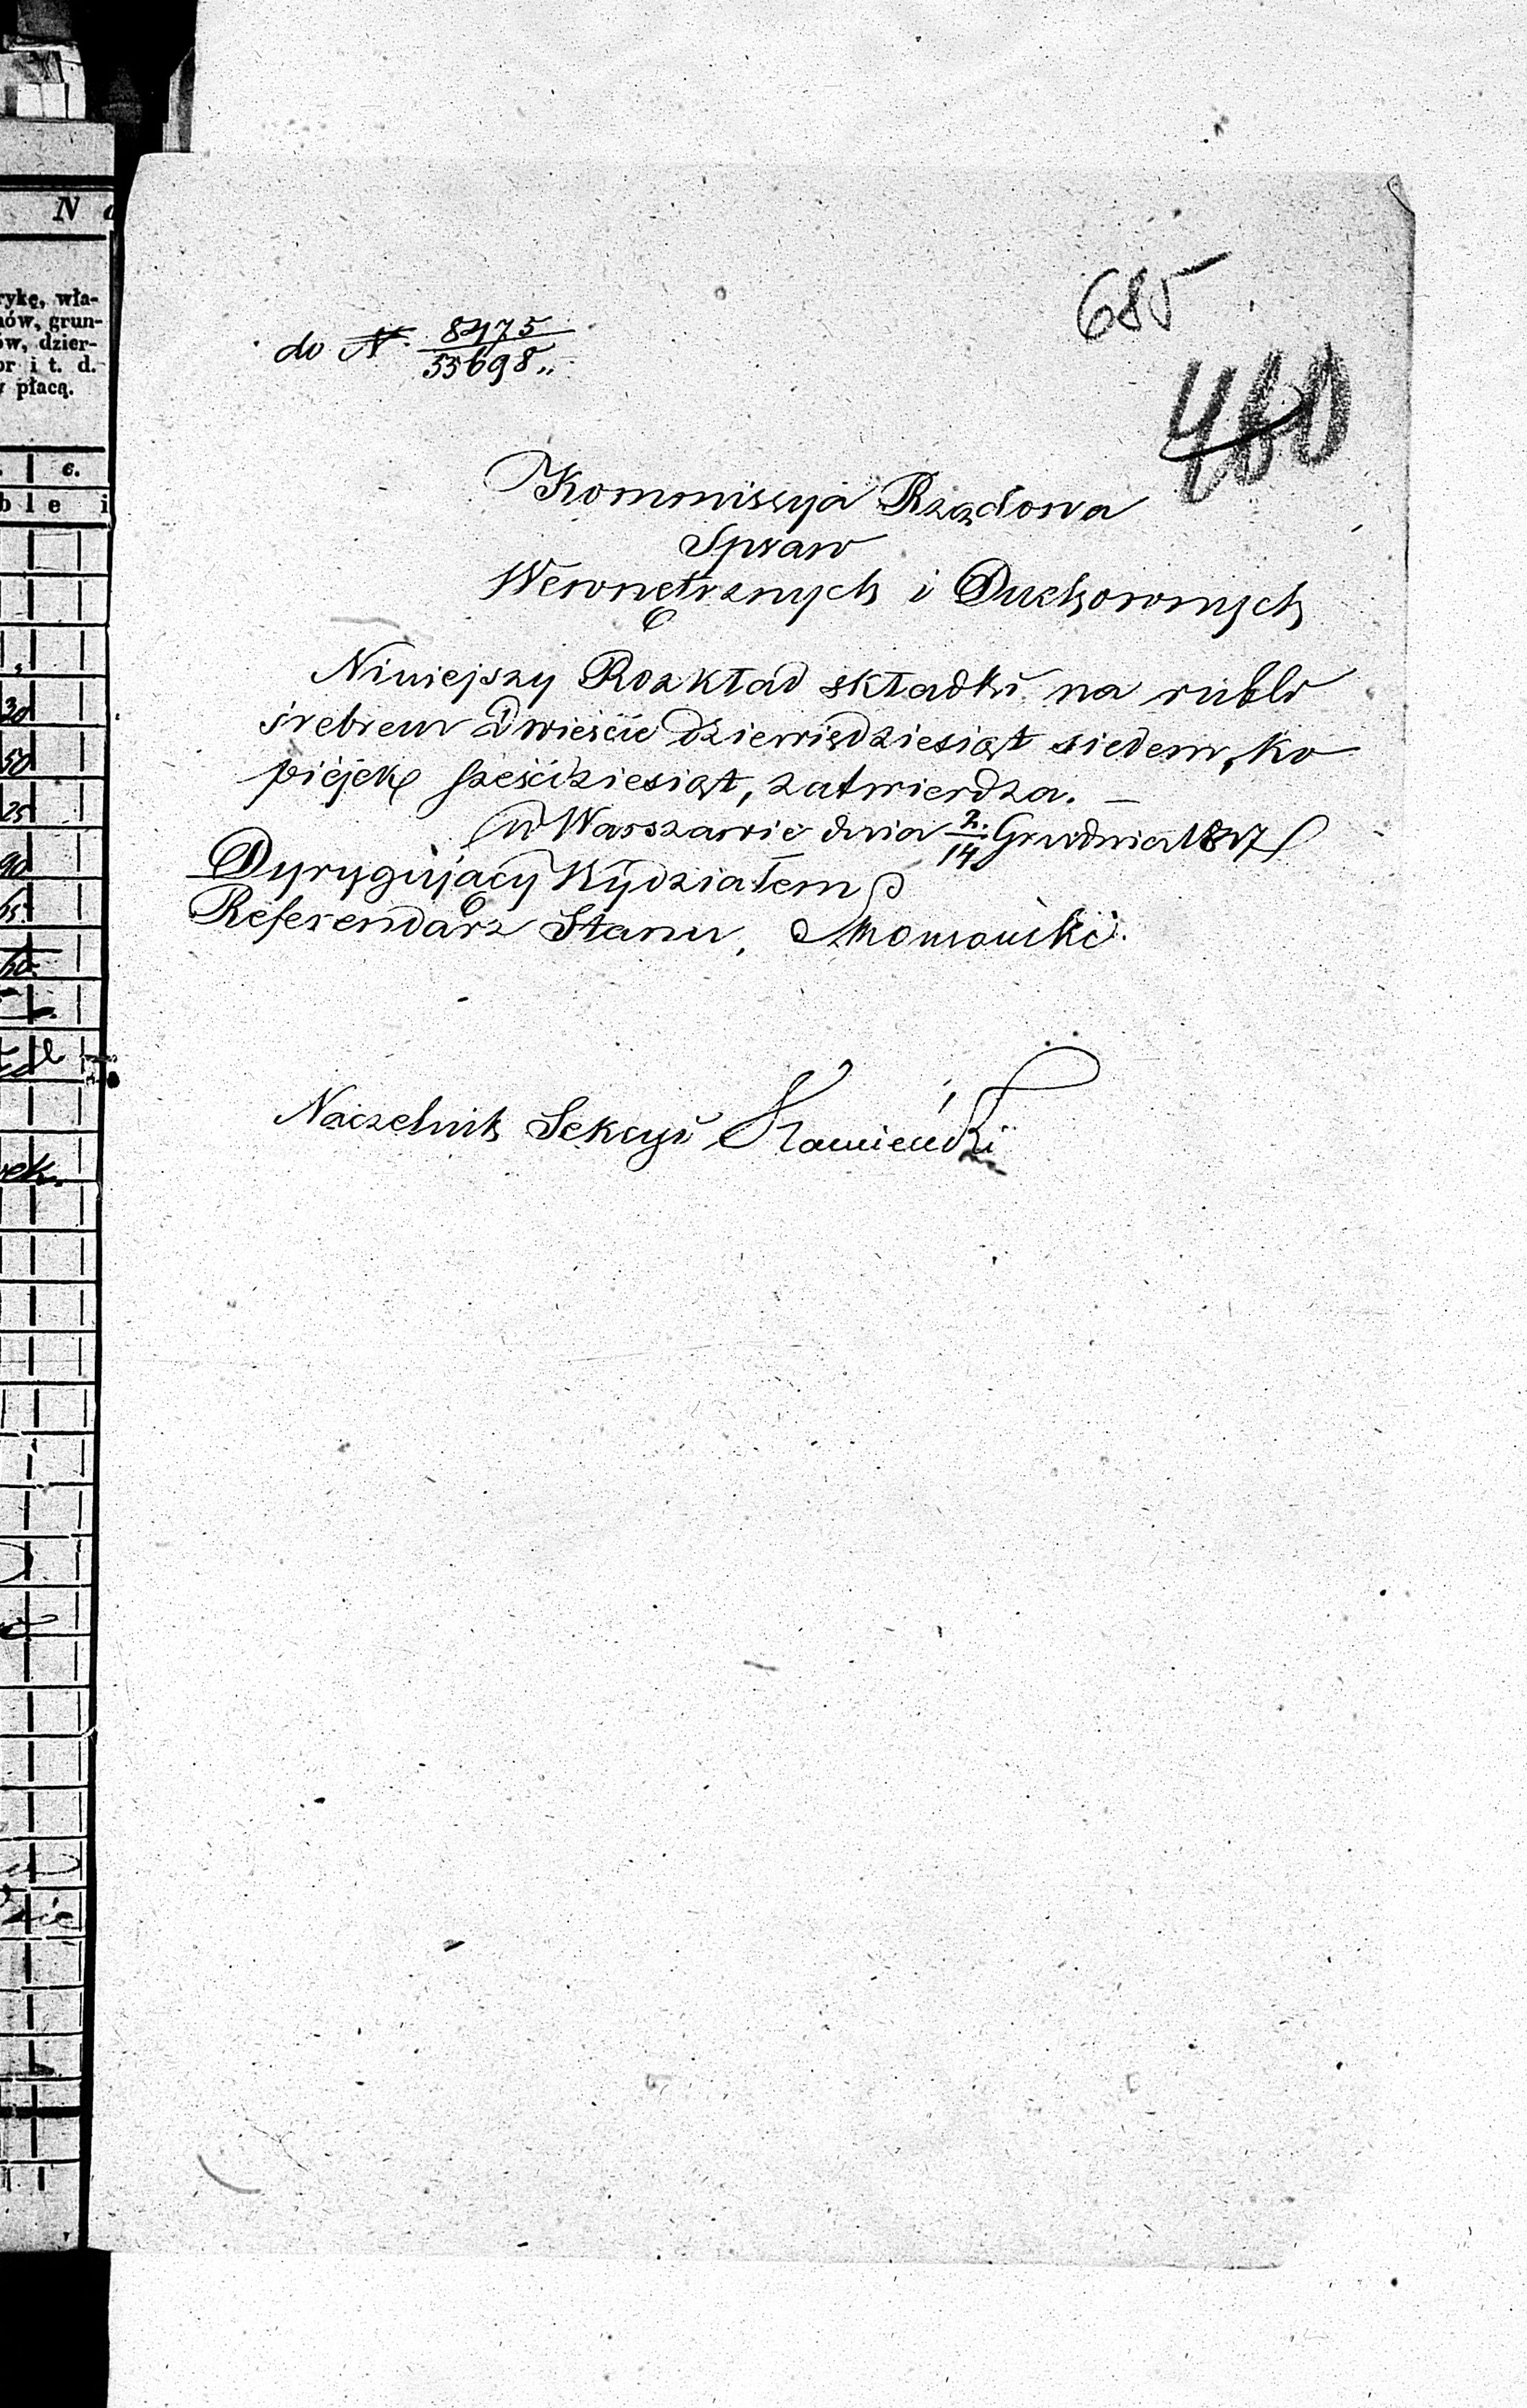 N
rykę, wła-
nów, grun-
ów, dzier-
or i t. d.
płacą.
c.
ble i
30
50
25
90
685
460
do N. 8475
55698
Kommissya Rządowa
Spraw
Wewnętrznych i Duchownych
Niniejszy Rozkład składki na rubli
srebrem Dwieście dziewięćdziesiąt siedem, ko
piejek sześćdziesiąt, zatwierdza. —
w Warszawie dnia 2/14 Grudnia 1847
Dyrygujący Wydziałem
Referendarz Stanu,
Naczelnik Sekcyi Kamieński